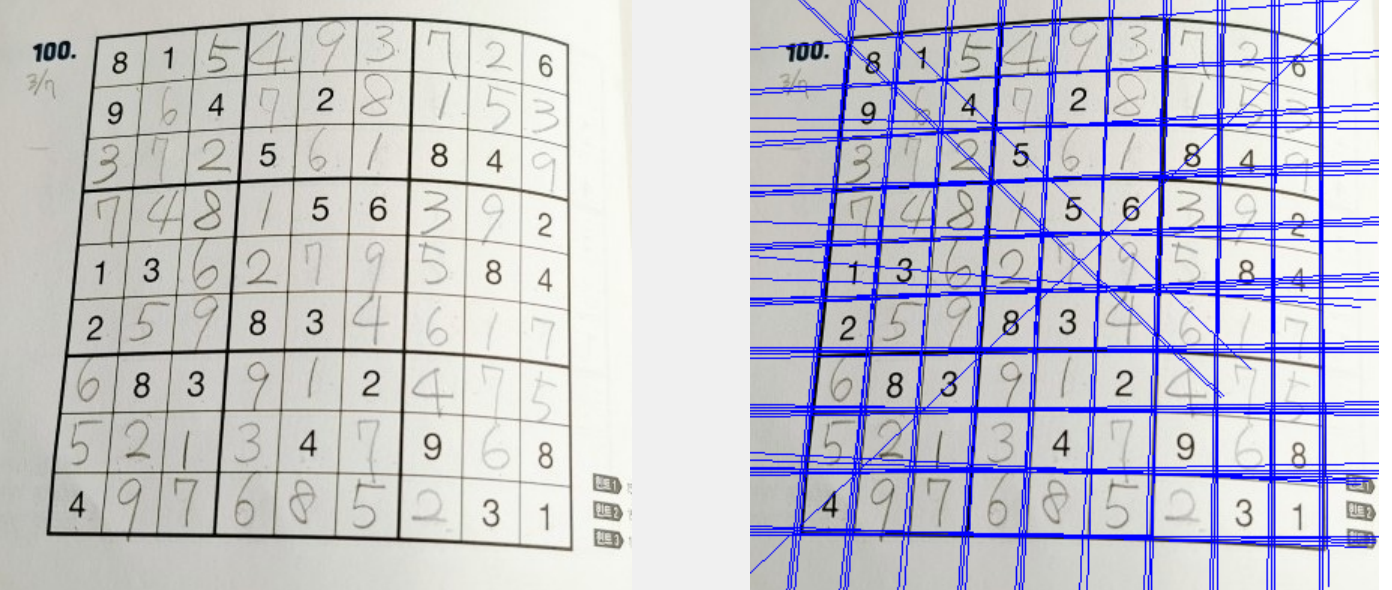 100.
3/7
8 1 5 4 9 3 7 2 6
9 6 4 7 2 8 1 5 3
3 7 2 5 6 1 8 4 9
7 4 8 1 5 6 3 9 2
1 3 6 2 7 9 5 8 4
2 5 9 8 3 4 6 1 7
6 8 3 9 1 2 4 7 5
5 2 1 3 4 7 9 6 8
4 9 7 6 8 5 2 3 1
힌트 1
힌트 2
힌트 3
100.
3/7
8 1 5 4 9 3 7 2 6
9 6 4 7 2 8 1 5 3
3 7 2 5 6 1 8 4 9
7 4 8 1 5 6 3 9 2
1 3 6 2 7 9 5 8 4
2 5 9 8 3 4 6 1 7
6 8 3 9 1 2 4 7 5
5 2 1 3 4 7 9 6 8
4 9 7 6 8 5 2 3 1
힌트 1
힌트 2